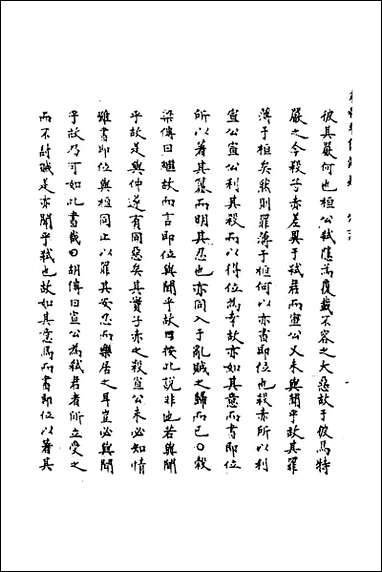 彼其嚴何也桓公弑隱爲覆載不容之大惡故于彼焉特
嚴之今殺子赤差異于弑君而宣公又未與聞乎故其罪
薄于桓矣然則罪薄于桓何以亦書即位也殺赤所以利
宣公宣公利其殺而以得位爲幸故亦如其意而書即位
所以著其篡而明其忍也亦同入于亂賊之歸而已○穀
梁傳曰繼故而言即位與聞乎故曰按此說非也若與聞
乎故是與仲遂有同惡矣其實子赤之殺宣公未必知情
雖書即位與桓同止以罪其安忍而樂居之耳豈必與聞
乎故乃可如此書哉○胡傳曰宣公爲弑君者所立受之
而不討賊是亦聞乎弑也故如其意焉而書即位以著其